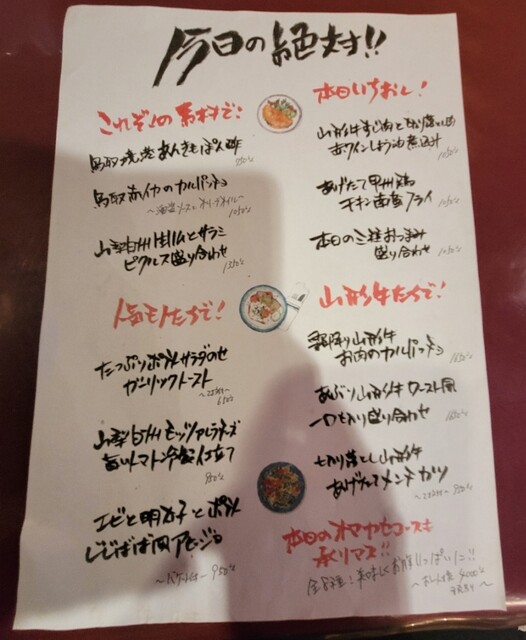 今日の絶対!!
これぞ!の
鳥取境港あんきもぽん酢
鳥取赤イカのカルパッチョ
1050円
山梨白州生ハムとサラミ
ピクルス盛り合わせ
1350円
人気モノたちで!
たっぷりポテトサラダのせ
ガーリックトースト
山梨白州モッツァレラチーズ
旨いトマト冷製仕立て
エビと明太子とポテト
アヒージョ
950円
本日いちおし!
山形牛すじ肉と
赤ワインしょう油煮込み
1050円
あげたて甲州鶏
チキン南蛮フライ
1050円
本日の三種おつまみ
盛り合わせ
1050円
山形牛たちで!
霜降り山形牛
お肉のカルパッチョ
1650円
あぶり山形牛ロースト風
盛り合わせ
1650円
切り落とし山形牛
あげたてメンチカツ
本日のオマカセコースも
承リマス!!
美味しくお腹いっぱいに!!